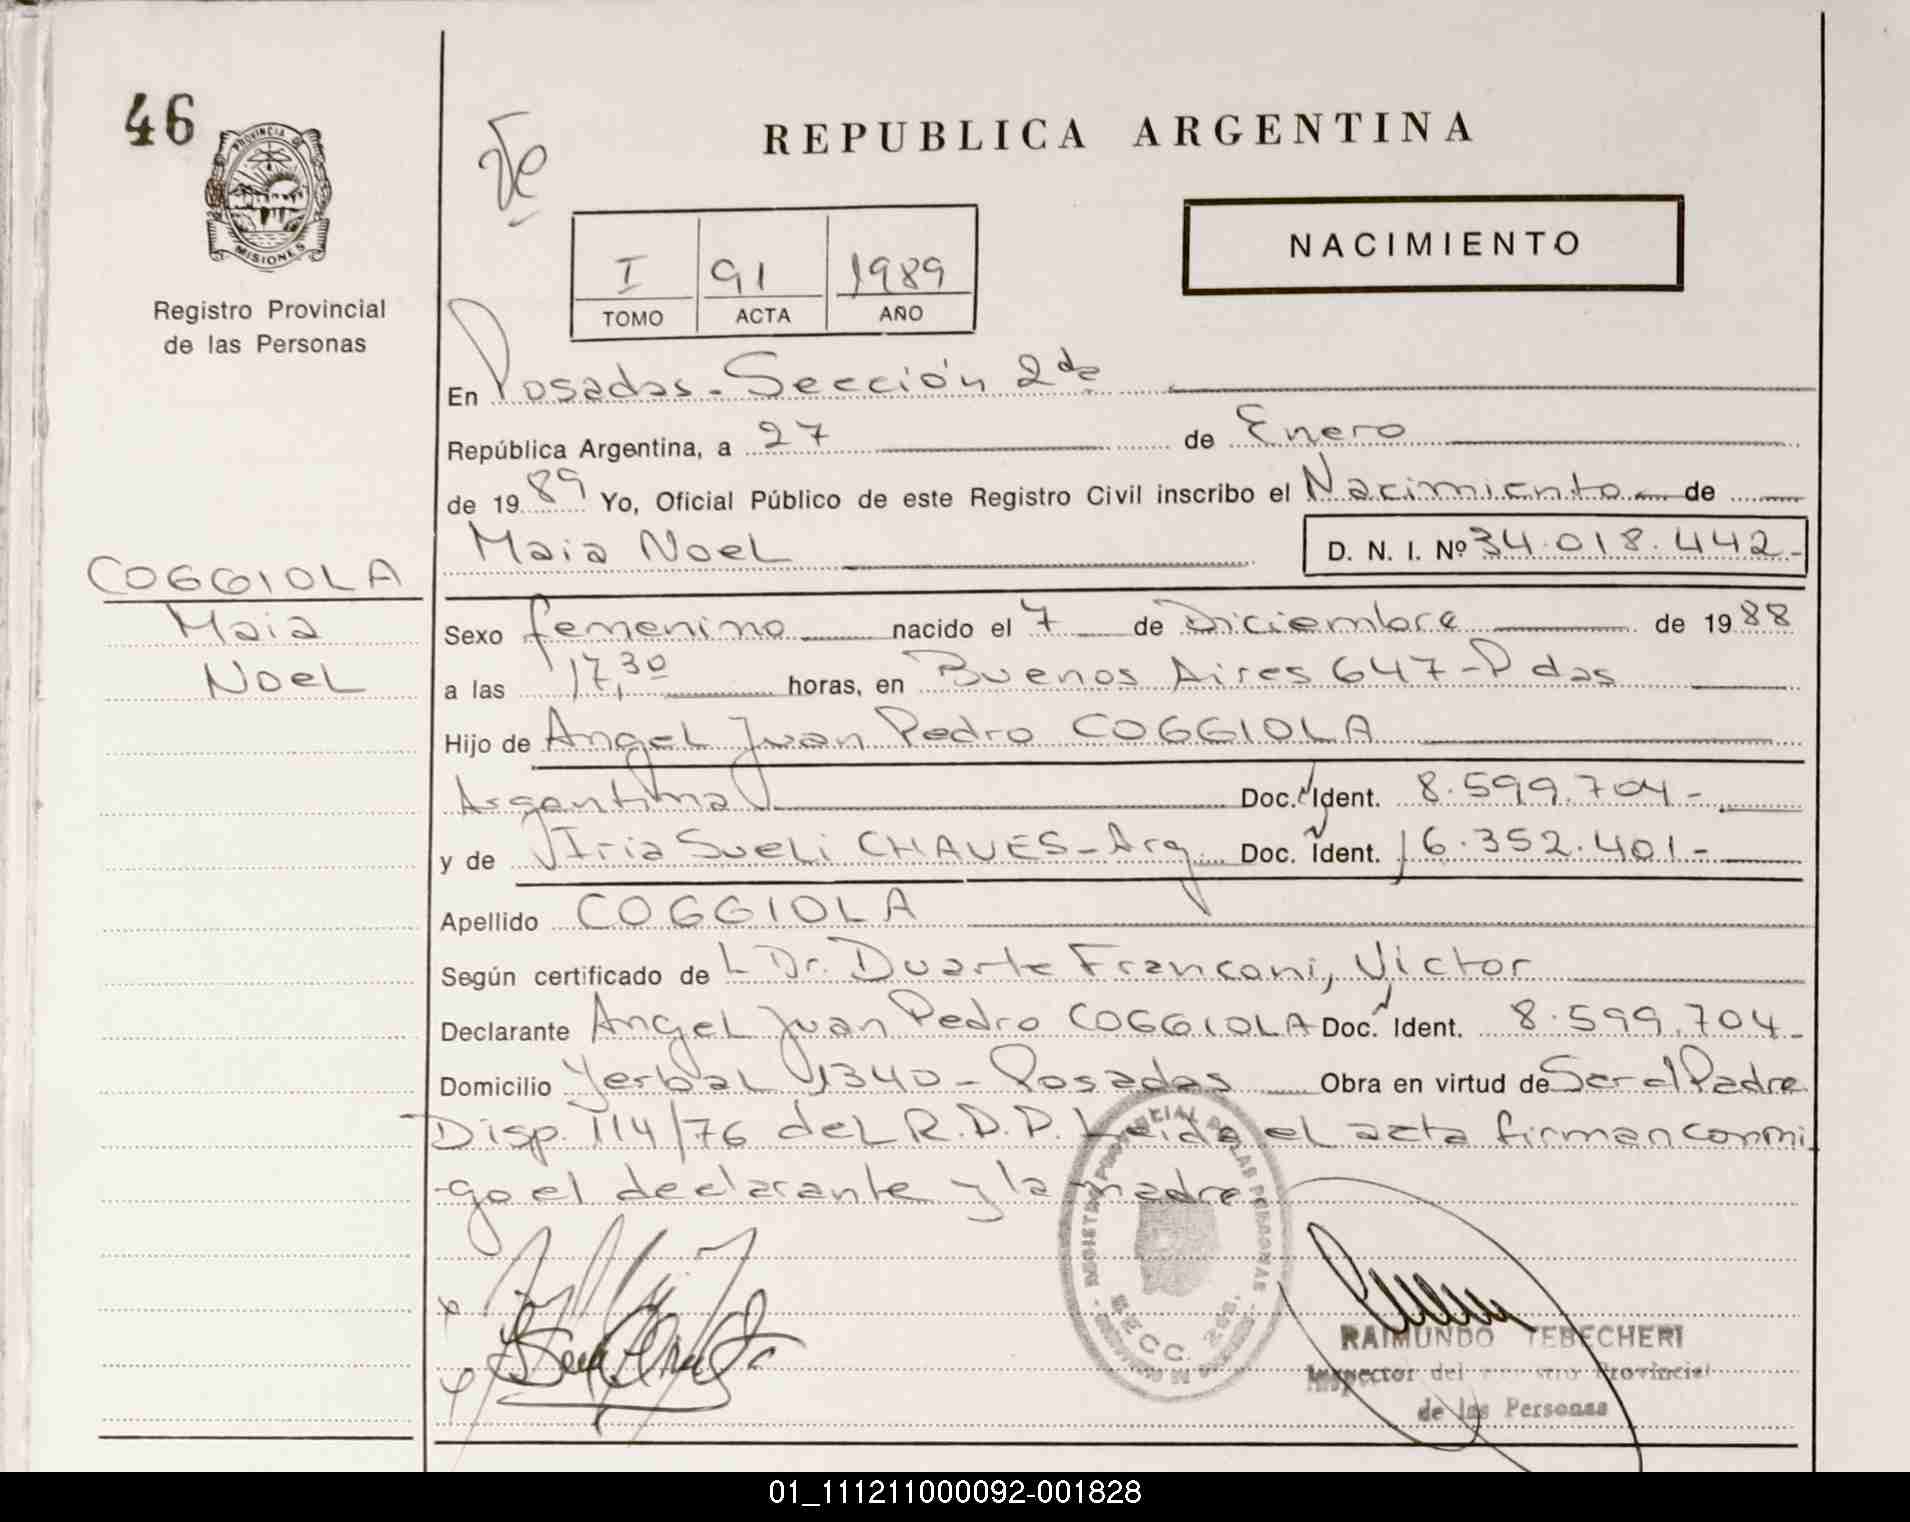 46
PROVINCIA DE
MISIONES
Registro Provincial
de las Personas
REPUBLICA ARGENTINA
NACIMIENTO
I 91 1989
TOMO ACTA AÑO
En Posadas - Sección 2da
República Argentina, a 27 de Enero
de 1989 Yo, Oficial Público de este Registro Civil inscribo el Nacimiento de
Maia Noel D. N. I. Nº 34.018.442-
COGGIOLA
Maia
Noel
Sexo femenino nacido el 7 de Diciembre de 1988
a las 17,30 horas, en Buenos Aires 647 - Pdas
Hijo de Angel Juan Pedro COGGIOLA
Argentina Doc. Ident. 8.599.704-
y de Iria Sueli CHAVES - Arg. Doc. Ident. 16.352.401-
Apellido COGGIOLA
Según certificado de L Dr. Duarte Franconi, Victor
Declarante Angel Juan Pedro COGGIOLA Doc. Ident. 8.599.704-
Domicilio Yerbal 1340 - Posadas Obra en virtud de Ser el Padre
Disp. 114/76 del R.D.P. Leida el acta firman conmi
-go el declarante y la madre
REGISTRO PROVINCIAL DE LAS PERSONAS
SECC. 2da.
RAIMUNDO TEBECHERI
Inspector del Registro Provincial
de las Personas
01_111211000092-001828